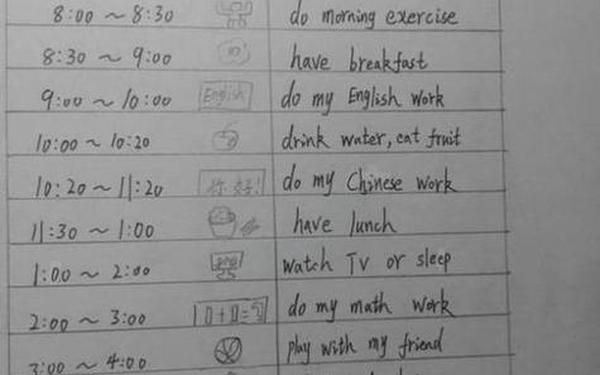 8:00 ~ 8:30 do morning exercise
8:30 ~ 9:00 have breakfast
9:00 ~ 10:00 English do my English work
10:00 ~ 10:20 drink water, eat fruit
10:20 ~ 11:20 你好! do my Chinese work
11:30 ~ 1:00 have lunch
1:00 ~ 2:00 watch TV or sleep
2:00 ~ 3:00 do my math work
3:00 ~ 4:00 play with my friend